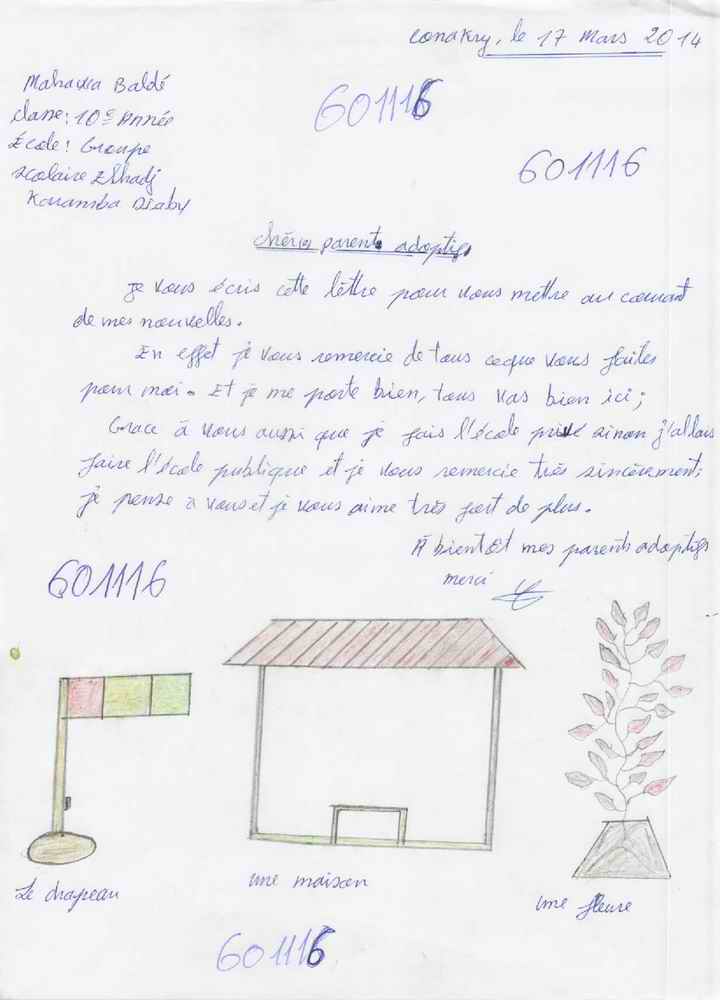 Conakry, le 17 Mars 2014
Mahawa Baldé
Classe: 10e Année
601116
École: Groupe
601116
scolaire Elhadj
Karamba Diaby
chères parents adoptifs
Je vous écris cette lèttre pour vous mettre au courant
de mes nouvelles.
En effet je vous remercie de tous ceque vous faites
pour moi. Et je me porte bien, tous vas bien ici;
Grace à vous aussi que je fais l'école privé sinon j'allais
faire l'école publique et je vous remercie très sincèrement;
je pense à vous et je vous aime très fort de plus.
À bientôt mes parents adoptifs
merci
601116
Le drapeau
une maison
une fleure
601116